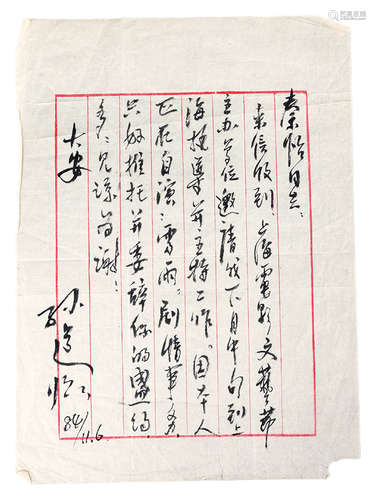 秦怡同志:
来信收到。上海電影文藝节
主办单位邀请我下月中旬到上
海挂導并主持工作。因本人
正在自演《雷雨》剧情事务
只好推托并委辞你的盛约,
多之见諒為谢!
大安
孙道临
84/11.6